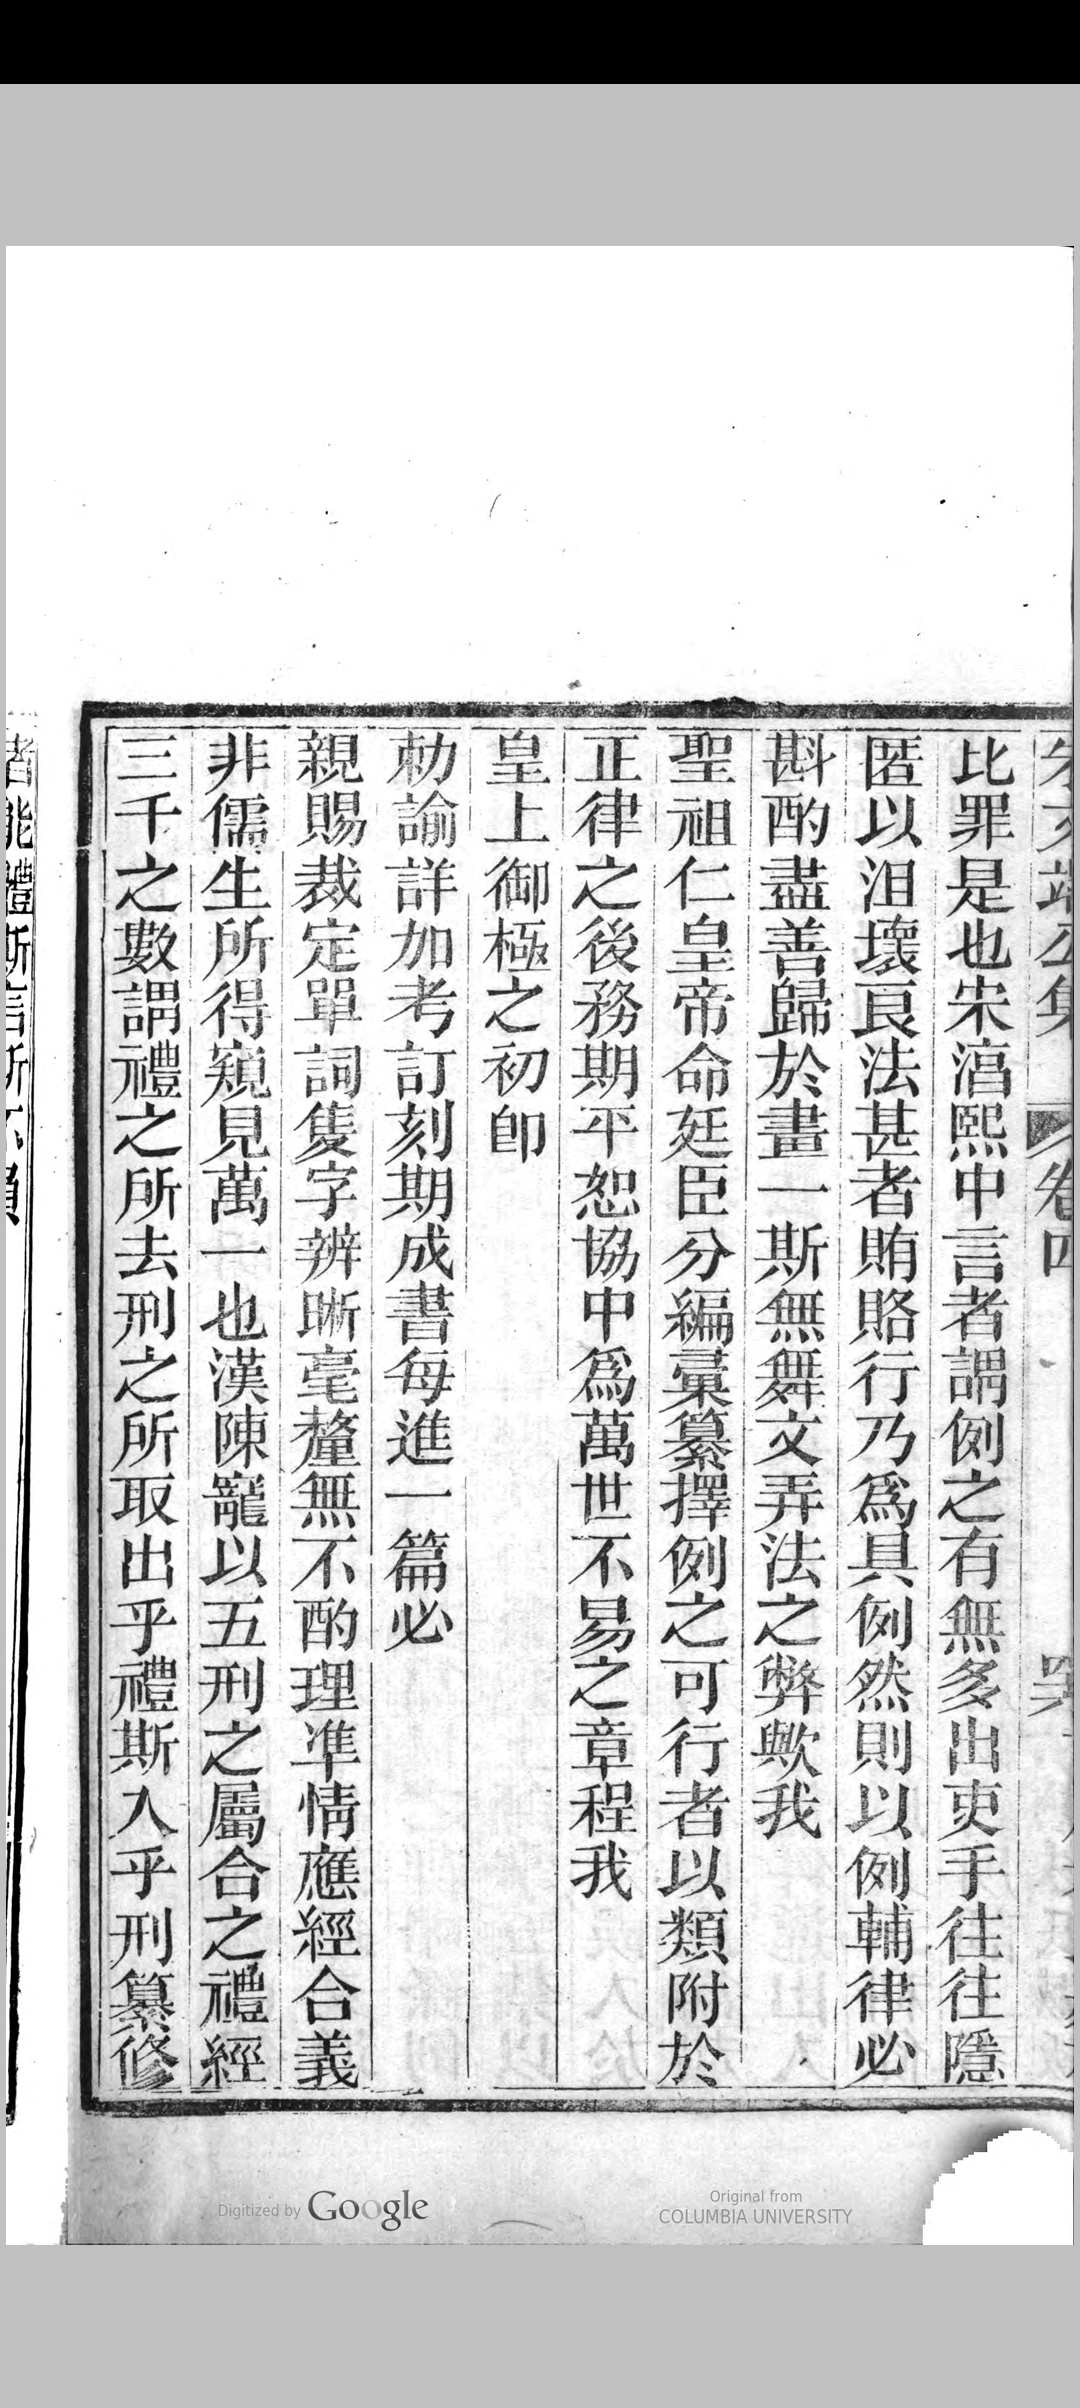 朱文端公集 卷四
比罪是也宋淳熙中言者謂例之有無多出吏手往往隱
匿以沮壞良法甚者賄賂行乃爲具例然則以例輔律必
斟酌盡善歸於畫一斯無舞文弄法之弊歟我
聖祖仁皇帝命廷臣分編彙纂擇例之可行者以類附於
正律之後務期平恕協中爲萬世不易之章程我
皇上御極之初卽
勅諭詳加考訂刻期成書每進一篇必
親賜裁定單詞隻字辨晰毫釐無不酌理準情應經合義
非儒生所得窺見萬一也漢陳寵以五刑之屬合之禮經
三千之數謂禮之所去刑之所取出乎禮斯入乎刑纂修
Digitized by Google
Original from
COLUMBIA UNIVERSITY